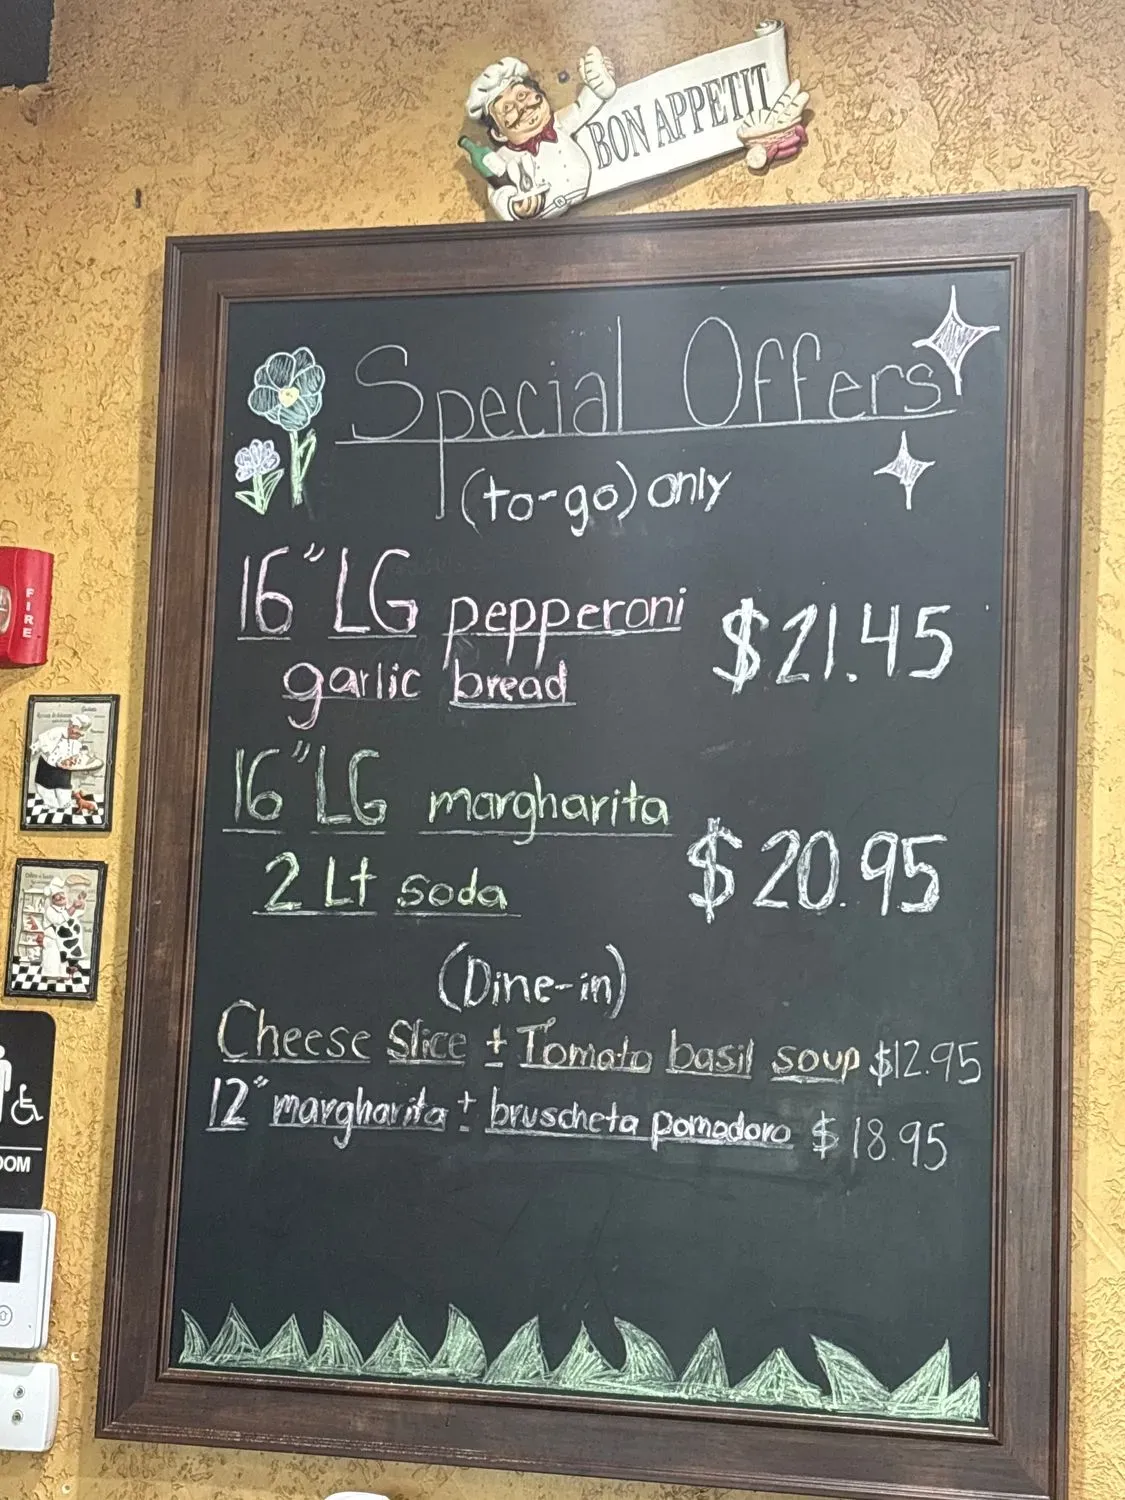 BON APPETIT
Special Offers
(to-go) only
16" LG pepperoni
garlic bread
$21.45
16" LG margharita
2 Lt soda
$20.95
(Dine-in)
Cheese Slice + Tomato basil soup $12.95
12" margharita + bruscheta pomodoro $18.95
FIRE
OOM